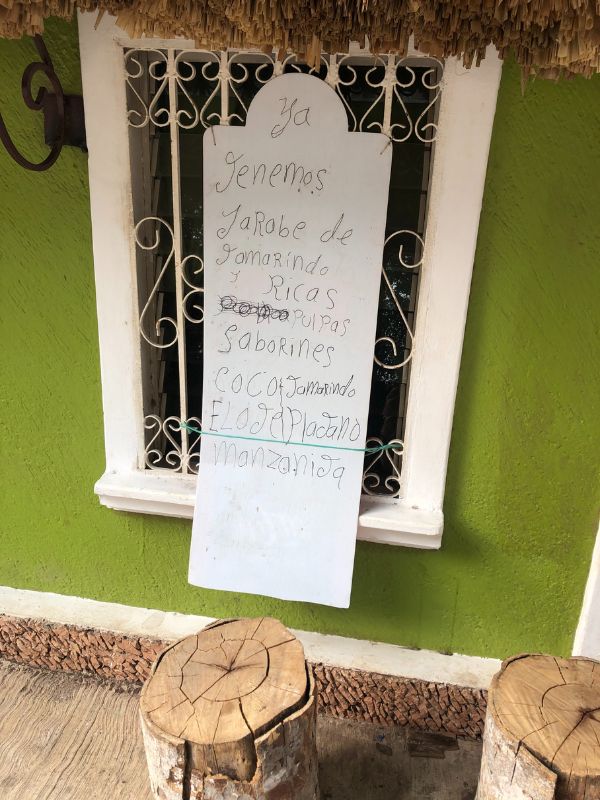 Ya
Tenemos
JaRabe de
Tamarindo
y RICAS
PULPAS
Saborines
COCO Tamarindo
ELOTE Platano
Manzanita